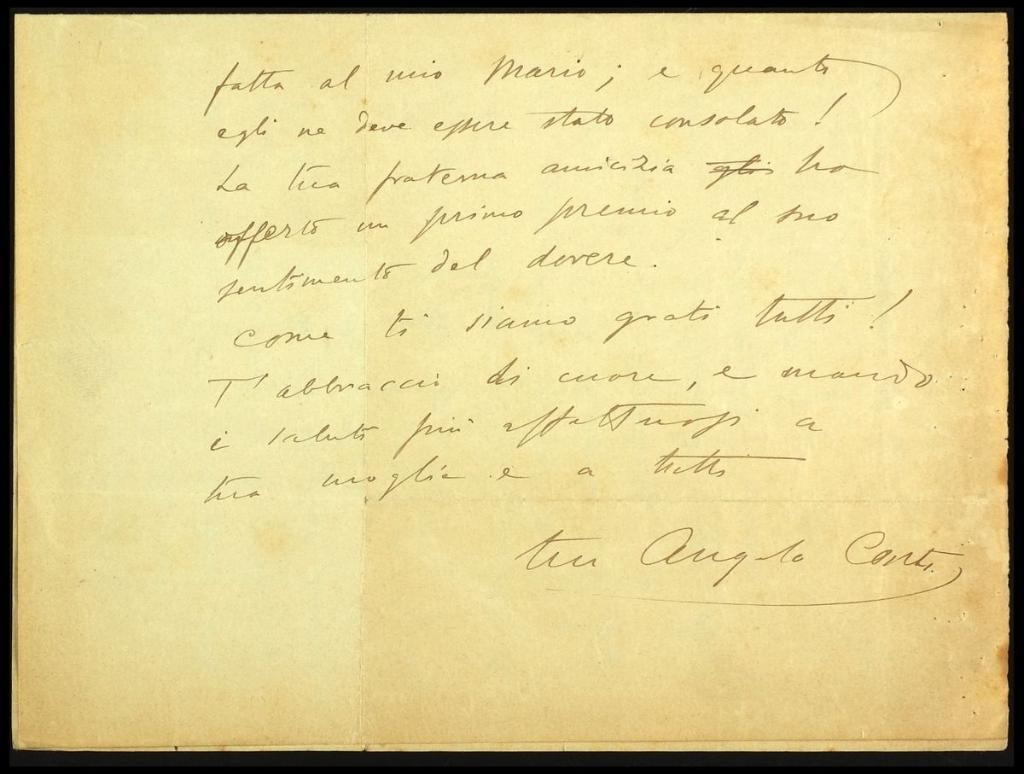 fatta al mio Mario; e quanto
egli ne deve essere stato consolato!
La tua fraterna amicizia gli ha
offerto un primo premio al suo
sentimento del dovere.
Come ti siamo grati tutti!
T'abbraccio di cuore, e mando
i saluti più affettuosi a
tua moglie e a tutti
tuo Angelo Conti